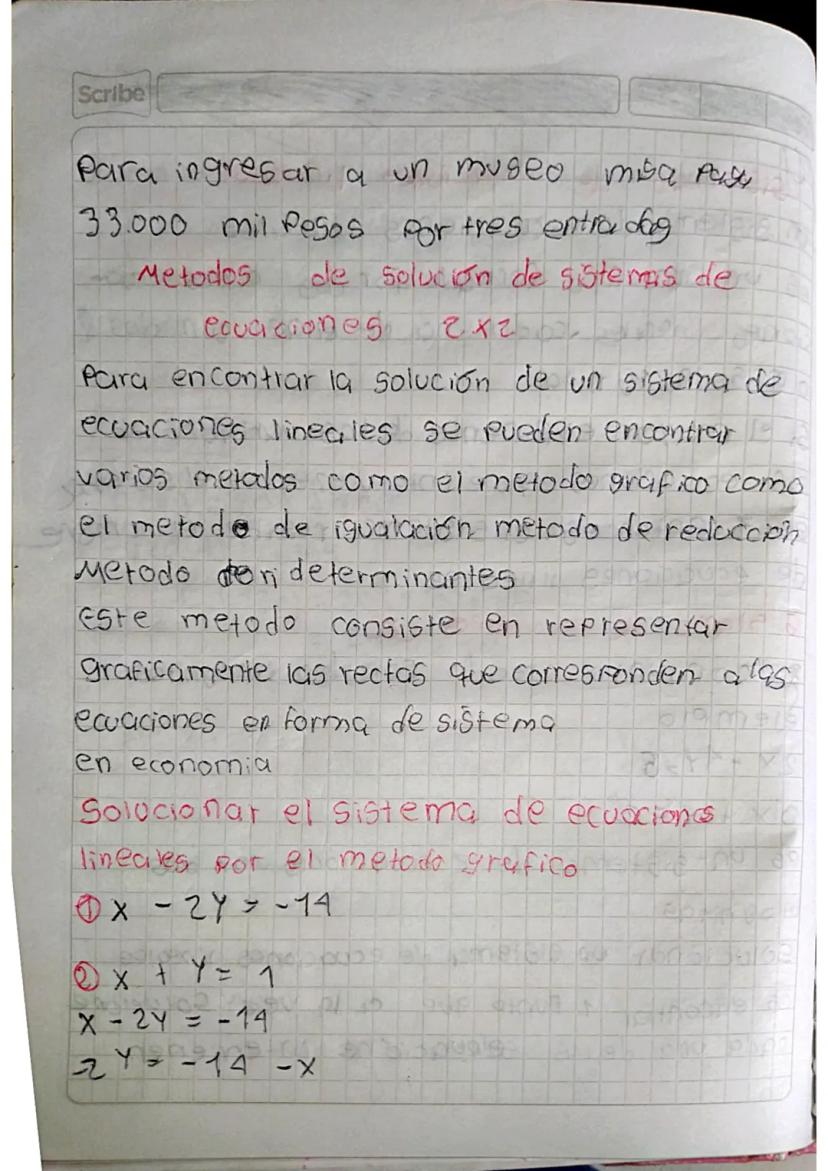 Scribe
Para ingresar a un museo
33.000 mil Pesos por tres entradas
Metodos de solución de sistemas de
ecuaciones 2x2
Para encontrar la solución de un sistema de
ecuaciones lineales se pueden encontrar
varios metodos como el metodo grafico como
el metodo de igualación metodo de reducción
Metodo determinantes
Este metodo consiste en representar
graficamente las rectas que corresponden a las
ecuaciones en forma de sistema
en economia
Solucionar el sistema de ecuaciones
lineales por el metodo grafico
① x - 2y = -14
② x + y = 1
x - 2y = -14
-2y = -14 - x